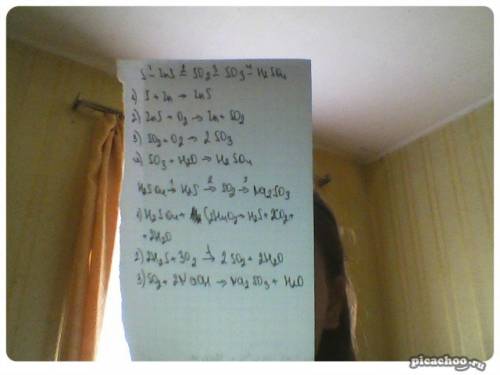 S -1 ZnS -2 SO2 -3 SO3 -4 H2SO4
1) S + Zn → ZnS
2) ZnS + O2 → Zn + SO2
3) SO2 + O2 → 2 SO3
4) SO3 + H2O → H2SO4
H2SO4 →1 H2S →2 SO2 →3 Na2SO3
1) H2SO4 + → H2S + 2CO2 +
+ 2H2O
2) 2H2S + 3O2 → 2 SO2 + 2H2O
3) SO2 + 2NaOH → Na2SO3 + H2O
picachoo.ru